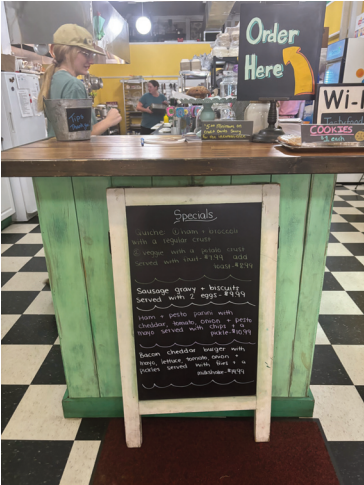 Order
Here
Tips
Wi-
COOKIES
$1 each
Specials
Quiche ① ham + broccoli
with a regular crust
② veggie with a potato crust
served with fruit-$7.99 add
toast-$8.99
Sausage gravy + biscuits
Served with 2 eggs-$9.99
Ham + pesto panini with
cheddar, tomato, onion + pesto
mayo served with chips + a
pickle-$10.99
Bacon cheddar burger with
mayo, lettuce, tomato, onion +
pickles served with fries + a
milkshake-$14.99